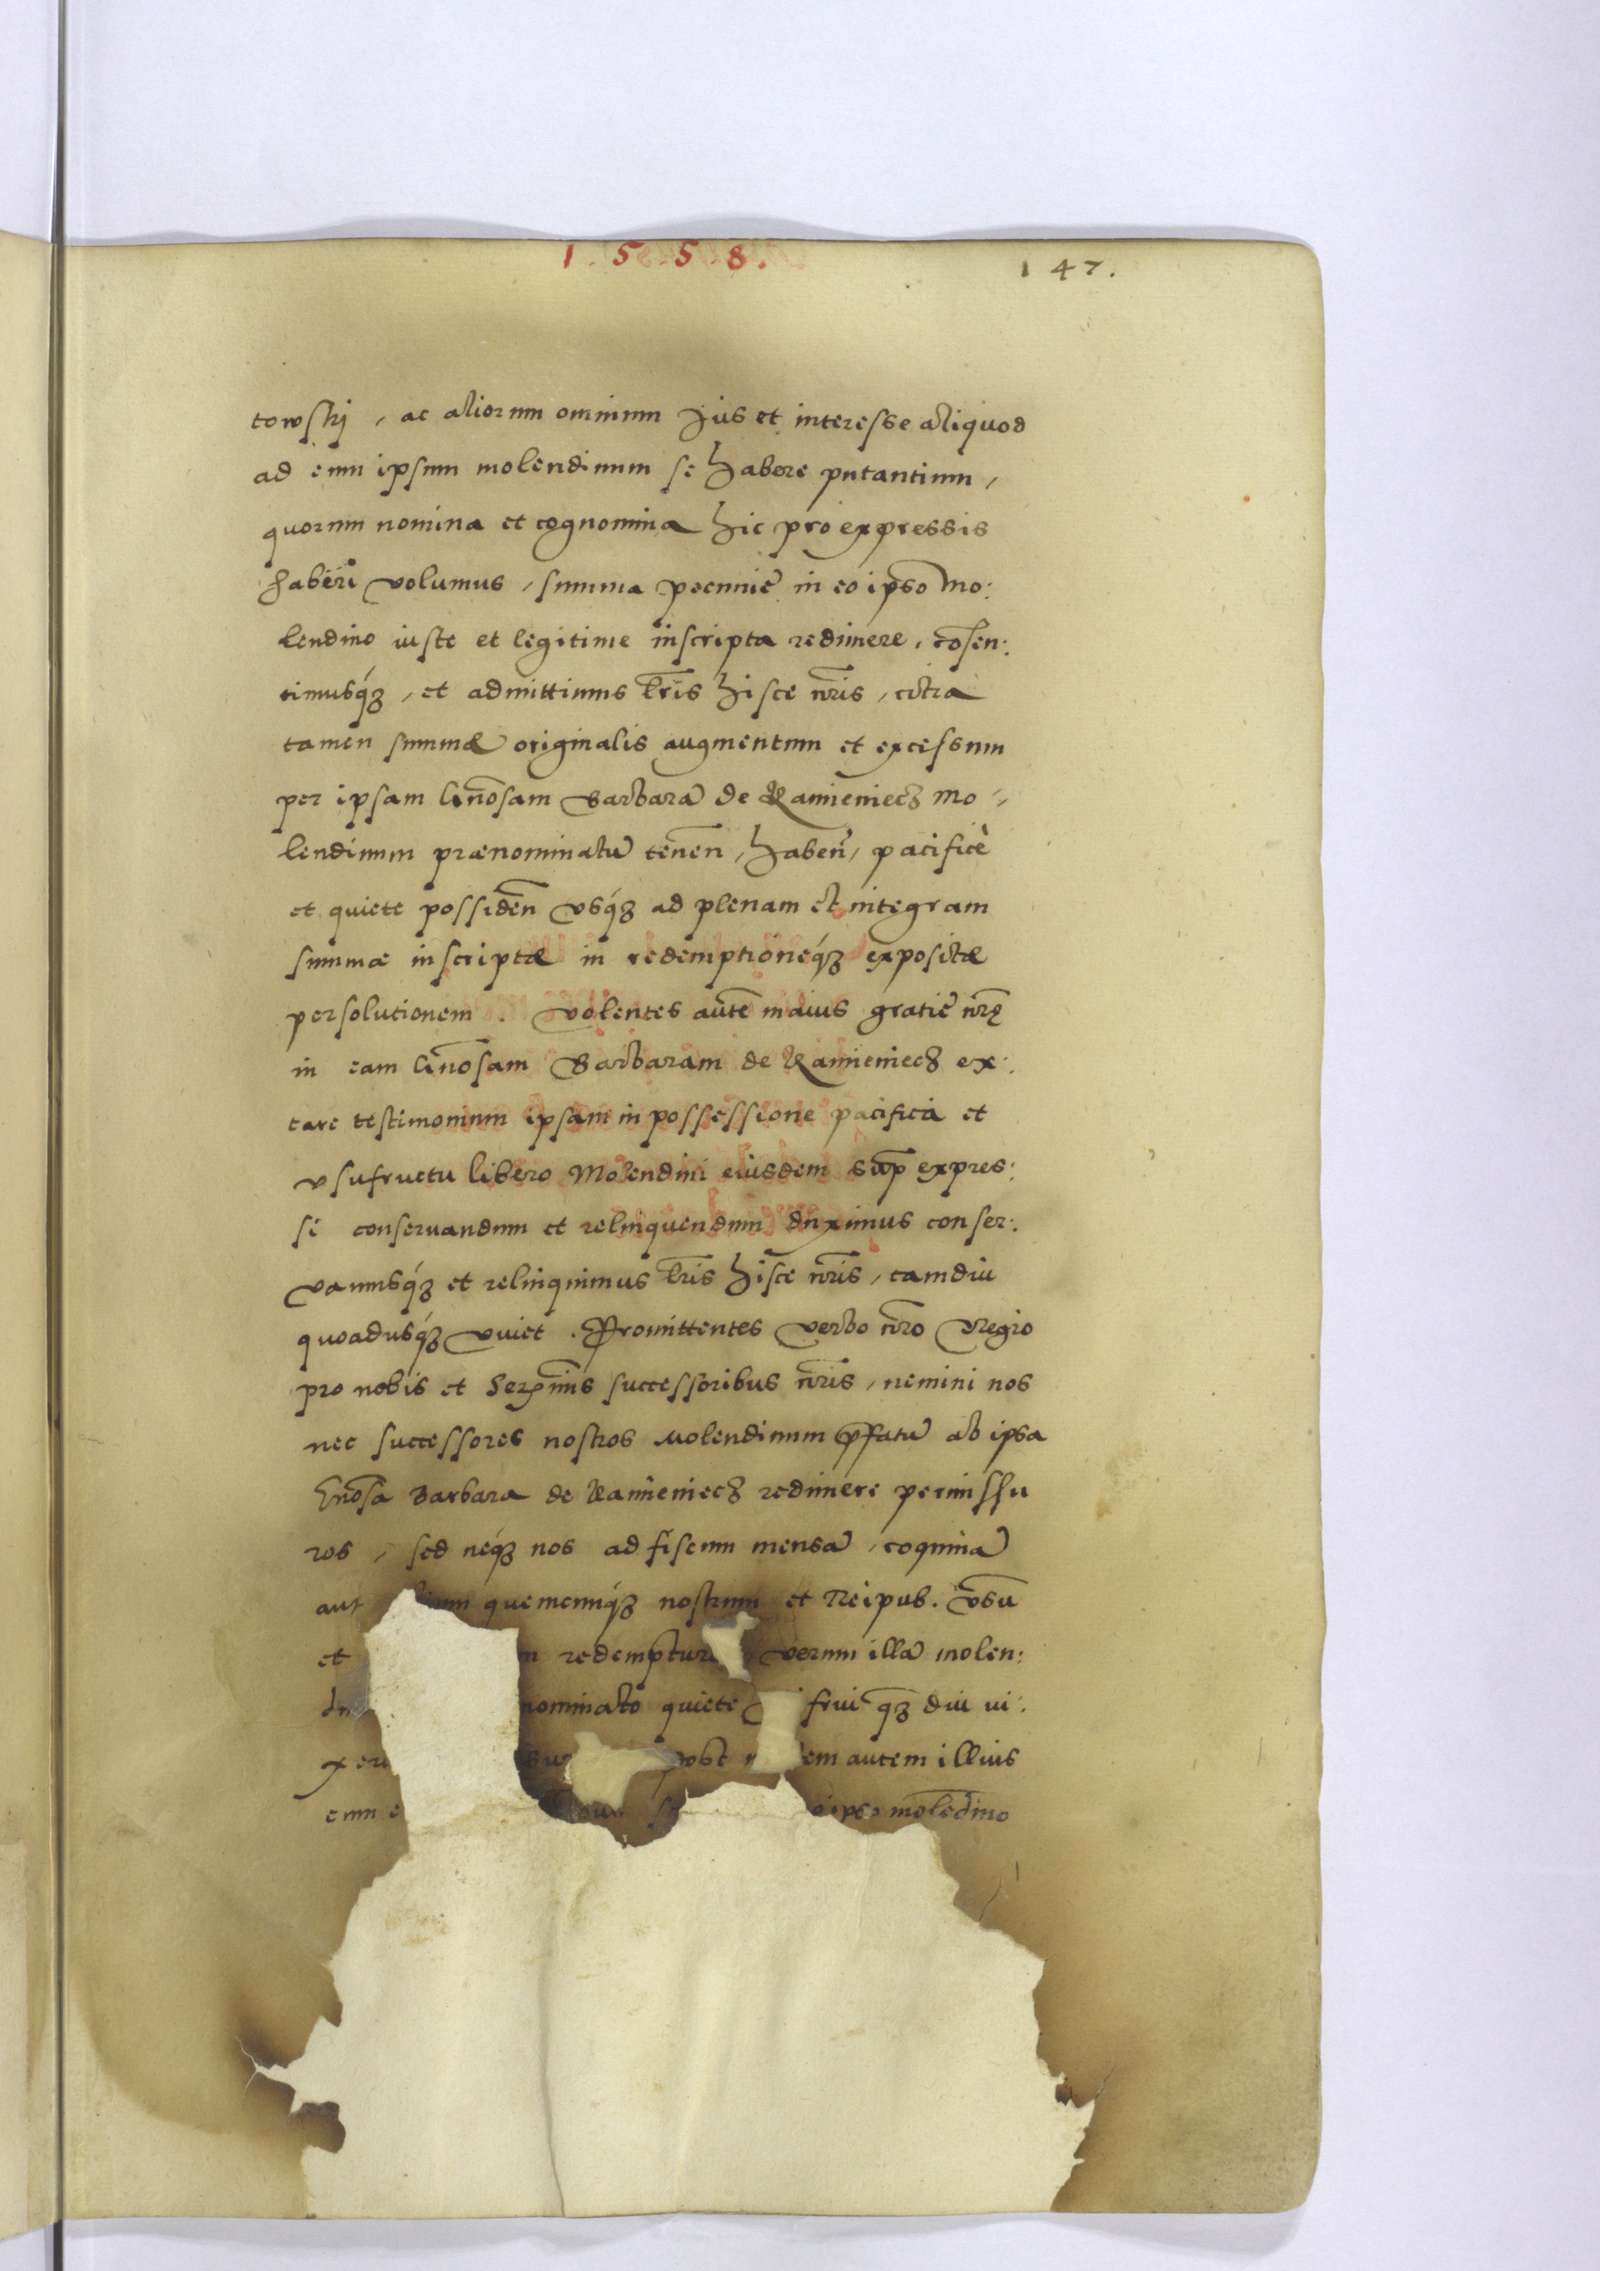 1558.
147.
towskj, ac aliorum omnium Jus et interesse aliquod
ad eum ipsum molendinum se habere putantium,
quorum nomina et cognomina hic pro expressis
haberi volumus, summa pecuniẽ in eo ipso Mo:
lendino iuste et legitime inscripta redimere, cõsen:
timusq́ꝫ, et admittimus l̃ris hisce nr̃is, citra
tamen summæ originalis augmentum et excessum
per ipsam Gñosam Barbarã de Kamieniecz Mo:
lendinum prænominatũ teneñ, habeñ, pacificè
et quiete possideñ vsq́ꝫ ad plenam et integram
summæ inscriptæ in redemptioneq́ꝫ expositæ
persolutionem. Volentes aũte maius gratiẽ nr̃ę
in eam Gñosam Barbaram de Kamieniecz ex:
tare testimonium ipsam in possessione pacifica et
vsufructu libero Molendini eiusdem sup̃ expres:
si conseruandum et relinquendum duximus conser:
uamusq́ꝫ et relinquimus l̃ris hisce nr̃is, tamdiu
quoadusq́ꝫ viuet. Promittentes verbo nr̃o Regio
pro nobis et Serẽnimis successoribus nr̃is, nemini nos
nec successores nostros Molendinum p̃fatũ ab ipsa
Gñosa Barbara de Kamieniecz redimere permissu
ros, sed neq́ꝫ nos ad fiscum mensã, coquinã
aut quemcunq́ꝫ nostrum et Reipub. vsũ
et redemptur verum illã molen:
nominato quiete frui q̃ꝫ diu vi:
xer post em autem illius
eum ipso molẽdino